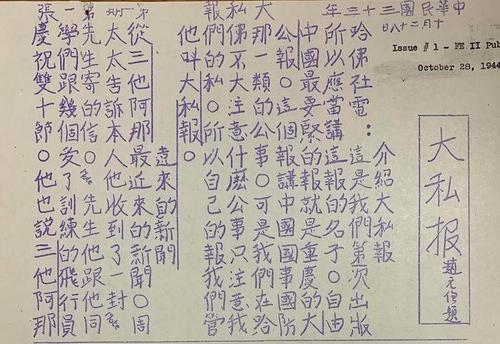 中華民國三十三年
十月二十八日
Issue # 1 - FE II Pub
October 28, 1944
大私报
趙元任題
介紹大私報
哈佛社電：這是我們第次出版
所以應當講這報的名子〇自由
中國最要緊的報就是重慶的大
公報〇這個報講中國事國際
大那一類的公事〇可是我們在哈
私佛不大注意什麽公事只注意我
報們的私〇所以自己的報我們管
他叫大私報〇
遠來的新聞
從三他阿那最近来的新聞〇周
太太告訴本人他收到了一封
先生寄的信〇先生他跟他同
學們跟幾個爱了訓練的飛行員
張慶祝雙十節〇他也說三他阿那